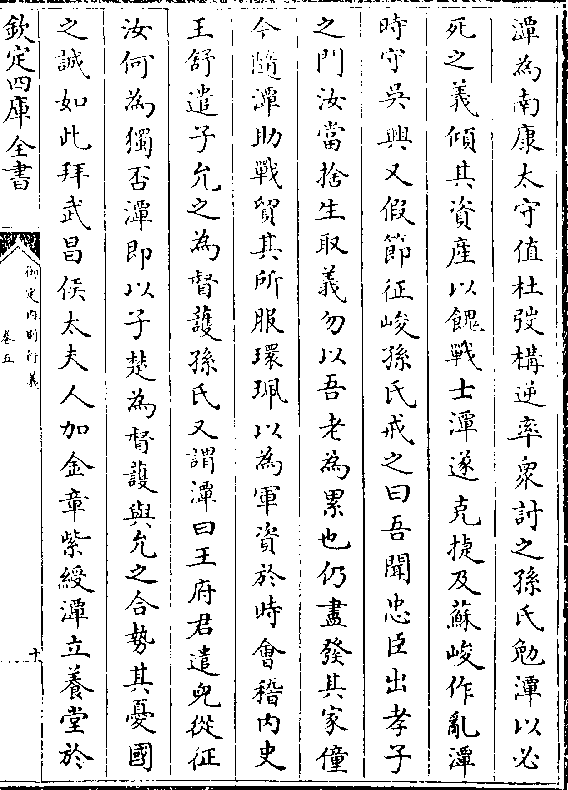 潭為南康太守值杜弢構逆率衆討之孫氏勉潭以必
死之義傾其資産以餽戰士潭遂克捷及蘇峻作亂潭
時守吳興又假節征峻孫氏戒之曰吾聞忠臣出孝子
之門汝當捨生取義勿以吾老為累也仍盡發其家僮
今隨潭助戰貿其所服環珮以為軍資於時會稽内史
王舒遣子允之為督䕶孫氏又謂潭曰王府君遣兒從征
汝何為獨否潭即以子楚為督䕶與允之合勢其憂國
之誠如此拜武昌侯太夫人加金章紫綬潭立養堂於
欽定四庫全書
御定内則衍義
卷五
十